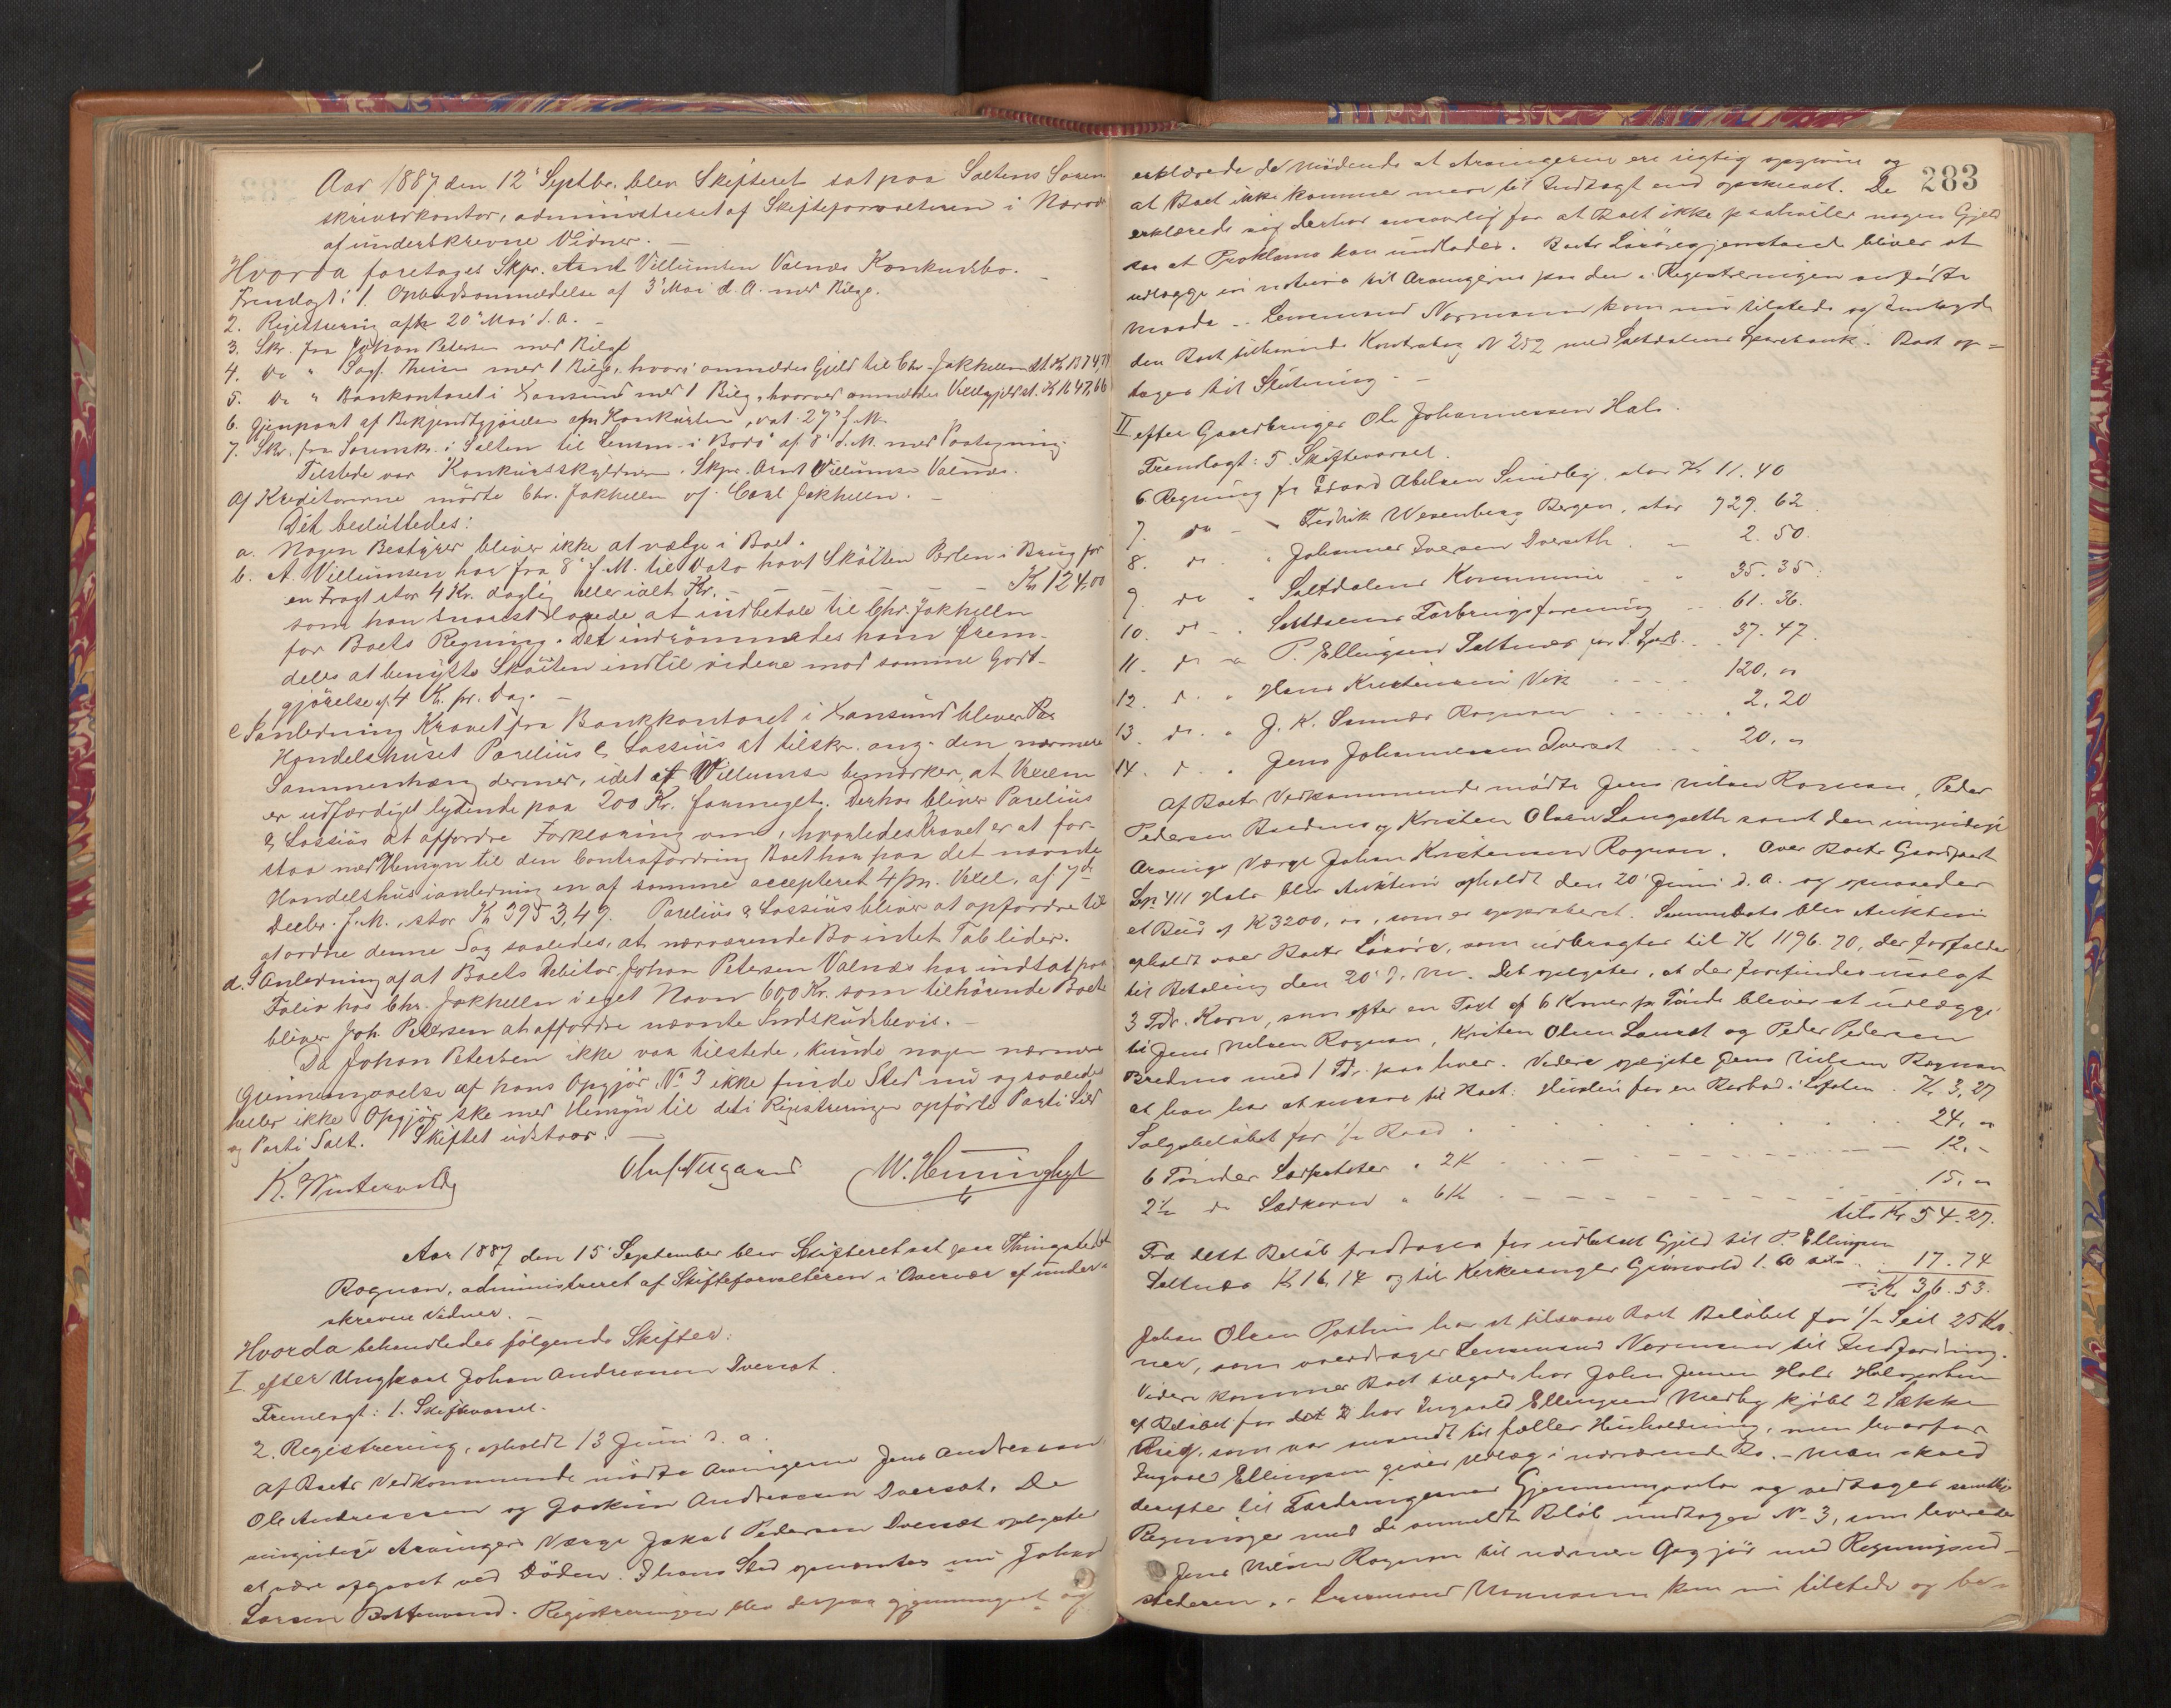 Aar 1887 den 12' Septbr. blev Skifteret sat paa Saltens Soren
skriverkontor, administreret af Skifteforvalteren i Nærvær
af underskrevne Vidner. –
Hvorda foretages Skpr. Arnt Villumsen Valnæs Konkursbo. –
Fremlagt: 1. Opbudsanmeldelse af 3' Mai d. A. med Bilag.
2. Registrering afh. 20' Mai d. A. –
3. Skr. fra Johan Petersen med Bilag
4. Do " Sagf. Theisen med 1 Bilag, hvori anmeldes Gjeld til Chr. Jakhelln
5. Do " Bankkontoret i Xansund med 1 Bilag, hvorved anmeldes Vexelgjeld st. K 1647,66
6. Gjenpart af Bekjendtgjørelse om Konkursen, dat. 27' f. M.
7. Skr. fra Sorenskr. i Salten til Lensm. i Bodø af 8' d. M. med Paategning.
Tilstede var Konkursskyldneren Skpr. Arnt Villumsen Valnæs.
Af Kreditorerne mødte Chr. Jakhelln v. Carl Jakhelln. –
Det besluttedes:
a. Nogen Bestyrer bliver ikke at vælge i Boet.
b. A. Villumsen har fra 8' f. M. til Dato havt Skøiten Perlen i Brug for
en Fragt stor 4 Kr. daglig eller ialt Kr. – – – – Kr 124,00
som han snarest lovede at indbetale til Chr. Jakhelln
for Boets Regning. Det indrømmedes ham frem-
deles at benytte Skøiten indtil videre mod samme Godt-
gjørelse af 4 Kr. pr. Dag. –
c I anledning Kravet fra Bankkontoret i Xansund bliver
Handelshuset Parelius & Lossius at tilskr. ang. den nærmere
Sammenhæng dermed, idet A. Villumsen bemærker, at Vexelen
er udfærdiget lydende paa 200 Kr. formeget. Derhos bliver Parelius
& Lossius at affordre Forklaring om, hvorledes Kravet er at for-
staa med Hensyn til den Contrafordring Boet har paa det nævnte
Handelshus i anledning en af samme accepteret 4 m. Vexel, af 7de
Decbr. f. A., stor Kr 3953,49. Parelius & Lossius bliver at opfordre til
at ordne denne Sag saaledes, at nærværende Bo intet Tab lider.
d. I Anledning af at Boets Debitor Johan Petersen Valnæs har indsat paa
Folio hos Chr. Jakhelln i eget Navn 600 Kr. som tilhørende Boet
bliver Joh. Petersen at affordre nævnte Indskudsbevis. –
Da Johan Petersen ikke var tilstede, kunde nogen nærmere
Gjennemgaaelse af hans Opgjør, No 3 ikke finde Sted nu og saaledes
heller ikke Opgjør ske med Hensyn til det i Registreringen opførte Parti Sild
og Parti Salt. Skiftet udstaar. –
K. Wintervold Oluf Nygaard
Aar 1887 den 15' September blev Skifteret sat paa Thingstedet
Rognan, administreret af Skifteforvalteren i Overvær af under-
skrevne Vidner. –
Hvorda behandledes følgende Skifter:
I. efter Ungkarl Johan Andreassen Dverset.
Fremlagt: 1. Skiftevarsel.
2. Registrering, afholdt 13 Juni d. a.
Af Boets Vedkommende mødte Arvingerne Jens Andreassen
Ole Andreassen og Joakim Andreassen Dverset. De
umyndige Arvingers Værge Jakob Pedersen Dverset oplystes
at være afgaaet ved Døden. I hans Sted opnævntes nu Johan
Larsen Bottenvand. Registreringen blev derpaa gjennemgaaet og
283
erklærede de Mødende at Arvingerne ere rigtig opgivne og
at Boet ikke kommer mere til Indtægt end opskrevet. De
erklærede sig derhos ansvarlig for at Boet ikke paahviler nogen Gjeld
saa at Proklama kan undlades. Boets Løsøregjenstande bliver at
udlægge in natura til Arvingerne paa den i Registreringen anførte
Maade. – Lensmand Normann kom nu tilstede og fremlagde
den Boet tilhørende Kontrabog N 252 med Saltdalens Sparebank. Boet op-
tages til Slutning. –
II efter Gaardbruger Ole Johannessen Hals.
Fremlagt: 5 Skiftevarsel.
6 Regning fr Edvard Abelsen Sundby, stor Kr 11.40
7. do – " Fredrik Wesenberg Bergen, stor 729.62
8. do " Johannes Iversen Dverseth. – 2.50.
9. do " Saltdalens Kommune – " 35.35.
10. do – " Saltdalens Forbrugsforening – 61.36.
11. do – " P. Ellingsen Saltnes for S. Sparb. – 37.47.
12. d. " Hans Kristensen Vik – – – 120,00
13. do. " J. K. Sannes Rognan – – – 2,20
14. d. " Jens Johannessen Dverset – – 20,00
Af Boets Vedkommende mødte Jens Nilsen Rognan, Peder
Pedersen Bredenes og Kristen Olsen Langseth samt den umyndige
Arvings Værge Johan Kristensen Rognan. Over Boets Gaardpart
Lb. 411 Hals blev Auktion afholdt den 20' Juni d. A. og opnaaedes
et Bud af K 3200,00, som er approberet. Sammesteds blev Auktion
afholdt over Boets Løsøre, som udbragtes til K 1196.70, der forfalder
til Betaling den 20' d. M. Det oplystes, at der forefindes usolgt
3 Tdr. Korn, som efter en Taxt af 6 Kroner pr Tønde bliver at udlægge
til Jens Nilsen Rognan, Kristen Olsen Langset og Peder Pedersen
Bredenes med 1 Td. paa hver. Videre oplyste Jens Nilsen Rognan
at han har at svare til Boet: Husleie for en Rorbod i Lofoten. Kr. 3,27
Salgsbeløbet for ½ Baad . . . . . . 24,00
6 Tønder Sædpoteter à 2 K . . – – – – 12,–
2½ do Sædkorn à 6 K . – – – – 15,00
tils Kr 54.27.
Fra dette Beløb fradrages for udbetalt Gjeld til P. Ellingsen
Saltnes Kr 16,14 og til Kirkesanger Grønvold 1.60 tils. 17.74
Kr 36.53.
Johan Olsen Pothus har at tilsvare Boet Beløbet for ½ Seil 25 Kro-
ner, som overdrages Lensmand Normann til Indfordring.
Videre kommer Boet tilgode hos John Jensen Hals Halvparten
af Beløbet for det 2 hos Ingvald Ellingsen Medby kjøbt 2 Sække
Rug, som var anvendt til fælles Husholdning, men hvorfor
Ingvald Ellingsen giver Udlæg i nærværende Bo. – Man skred
derefter til Fordringernes Gjennemgaaelse og vedtages samtlige
Regninger med de anmeldte Beløb undtagen No 3, som leveredes
Jens Nilsen Rognan til nærmere Opgjør med Regningsud-
stederen. – Lensmand Normann kom nu tilstede og be-